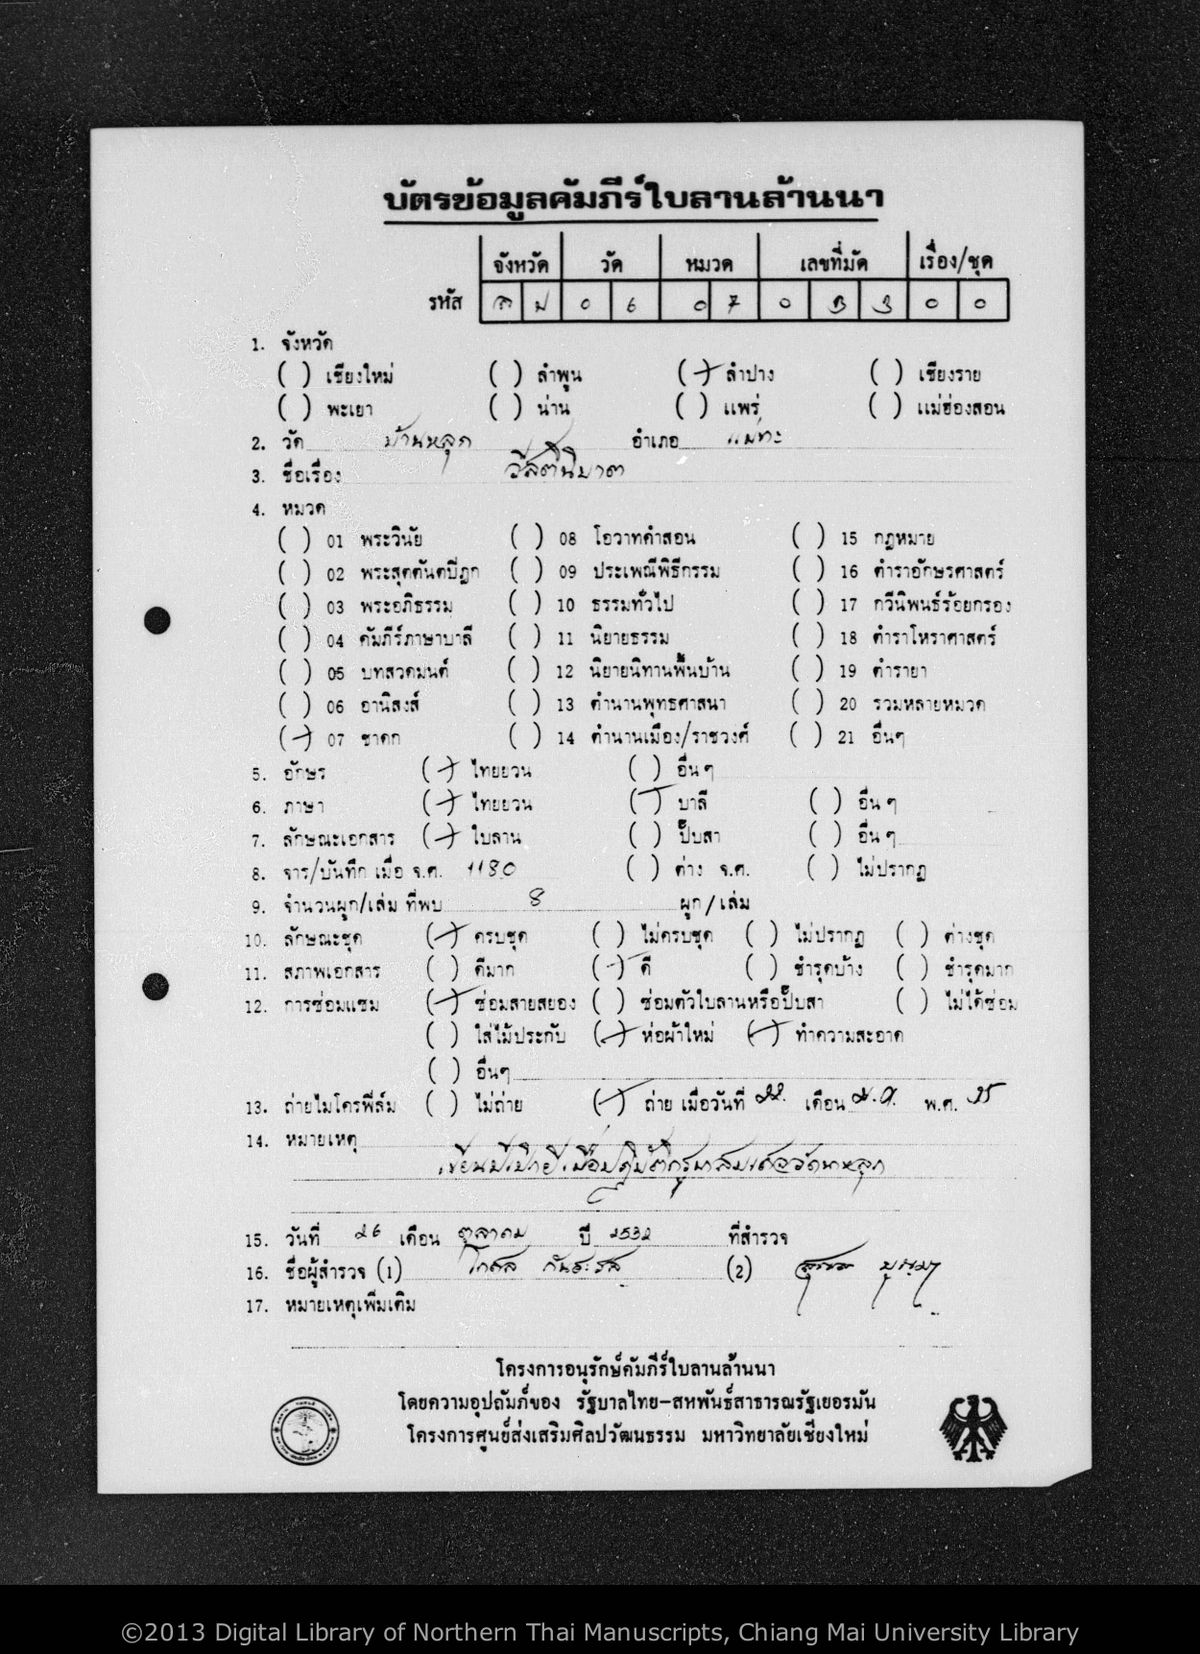 บัตรข้อมูลคัมภีร์ใบลานล้านนา
จังหวัด วัด หมวด เลขที่มัด เรื่อง/ชุด
รหัส ล ป 0 6 0 7 0 3 3 0 0
1. จังหวัด
( ) เชียงใหม่ ( ) ลำพูน (/) ลำปาง ( ) เชียงราย
( ) พะเยา ( ) น่าน ( ) แพร่ ( ) แม่ฮ่องสอน
2. วัด บ้านหลุก อำเภอ แม่ทะ
3. ชื่อเรื่อง วีสตินิบาต
4. หมวด
( ) 01 พระวินัย ( ) 08 โอวาทคำสอน ( ) 15 กฎหมาย
( ) 02 พระสุตตันตปิฎก ( ) 09 ประเพณีพิธีกรรม ( ) 16 ตำราอักษรศาสตร์
( ) 03 พระอภิธรรม ( ) 10 ธรรมทั่วไป ( ) 17 กวีนิพนธ์ร้อยกรอง
( ) 04 คัมภีร์ภาษาบาลี ( ) 11 นิยายธรรม ( ) 18 ตำราโหราศาสตร์
( ) 05 บทสวดมนต์ ( ) 12 นิยายนิทานพื้นบ้าน ( ) 19 ตำรายา
( ) 06 อานิสงส์ ( ) 13 ตำนานพุทธศาสนา ( ) 20 รวมหลายหมวด
(/) 07 ชาดก ( ) 14 ตำนานเมือง/ราชวงศ์ ( ) 21 อื่นๆ
5. อักษร (/) ไทยยวน ( ) อื่นๆ
6. ภาษา (/) ไทยยวน (/) บาลี ( ) อื่นๆ
7. ลักษณะเอกสาร (/) ใบลาน ( ) ปั๊บสา ( ) อื่นๆ
8. จาร/บันทึก เมื่อ จ.ศ. 1180 ( ) ต่าง จ.ศ. ( ) ไม่ปรากฏ
9. จำนวนผูก/เล่ม ที่พบ 8 ผูก/เล่ม
10. ลักษณะชุด (/) ครบชุด ( ) ไม่ครบชุด ( ) ไม่ปรากฏ ( ) ต่างชุด
11. สภาพเอกสาร ( ) ดีมาก (/) ดี ( ) ชำรุดบ้าง ( ) ชำรุดมาก
12. การซ่อมแซม (/) ซ่อมสายสยอง ( ) ซ่อมตัวใบลานหรือปั๊บสา ( ) ไม่ได้ซ่อม
( ) ใส่ไม้ประกับ (/) ห่อผ้าใหม่ (/) ทำความสะอาด
( ) อื่นๆ
13. ถ่ายไมโครฟิล์ม ( ) ไม่ถ่าย (/) ถ่าย เมื่อวันที่ 22 เดือน พ.ศ. 35
14. หมายเหตุ
15. วันที่ 26 เดือน ตุลาคม ปี 2532 ที่สำรวจ
16. ชื่อผู้สำรวจ (1) (2)
17. หมายเหตุเพิ่มเติม
โครงการอนุรักษ์คัมภีร์ใบลานล้านนา
โดยความอุปถัมภ์ของ รัฐบาลไทย-สหพันธ์สาธารณรัฐเยอรมัน
โครงการศูนย์ส่งเสริมศิลปวัฒนธรรม มหาวิทยาลัยเชียงใหม่
©2013 Digital Library of Northern Thai Manuscripts, Chiang Mai University Library